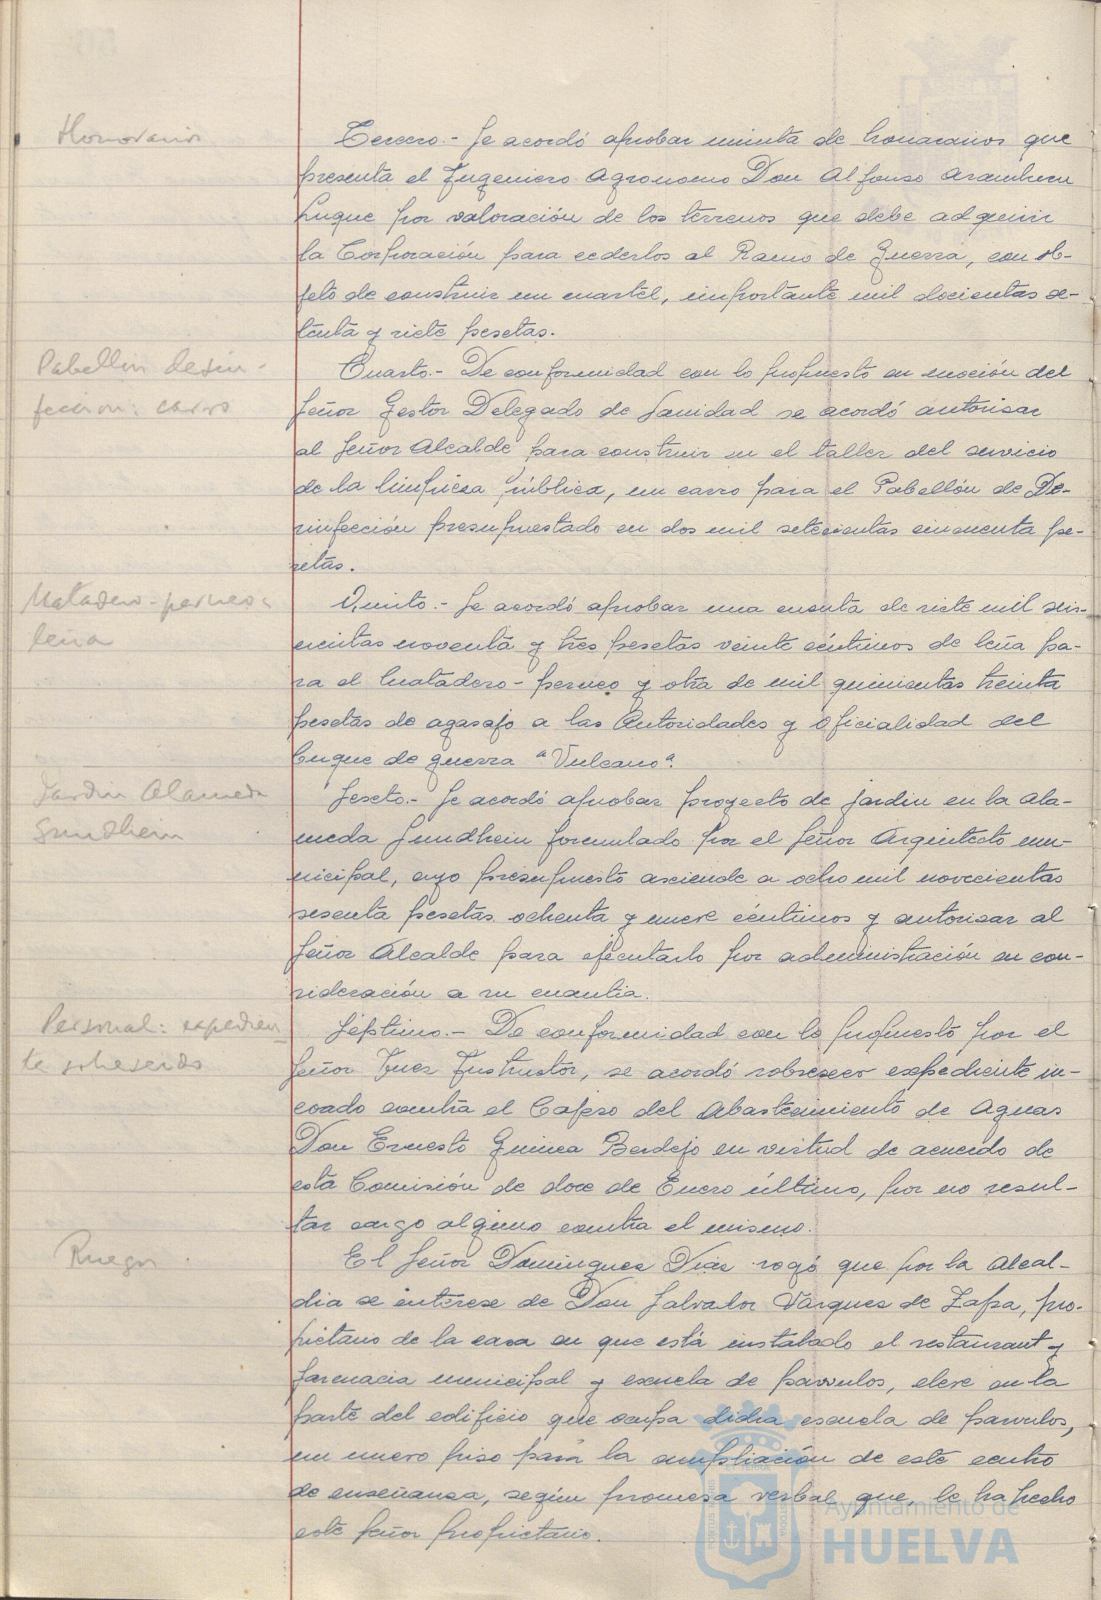 Honorarios
Tercero.- Se acordó aprobar minuta de honorarios que
presenta el Ingeniero Agronomo Don Alfonso Aramburu
Luque por valoración de los terrenos que debe adquirir
la Corporación para cederlos al Ramo de Guerra, con ob-
jeto de construir un cuartel, importante mil docientas se-
tenta y siete pesetas.
Pabellón desin-
fección: carro
Cuarto.- De conformidad con lo propuesto en moción del
Señor Gestor Delegado de Sanidad se acordó autorizar
al Señor Alcalde para construir en el taller del servicio
de la limpieza pública, un carro para el Pabellón de De-
sinfección presupuestado en dos mil setecientas cincuenta pe-
setas.
Matadero-porneo
leña
Quinto.- Se acordó aprobar una cuenta de siete mil seis-
cientas noventa y tres pesetas veinte céntimos de leña pa-
ra el Matadero-perneo y otra de mil quinientas treinta
pesetas de agasajo a las Autoridades y Oficialidad del
buque de guerra "Vulcano".
Jardín Alameda
Sundheim
Sexto.- Se acordó aprobar proyecto de jardin en la Ala-
meda Sundheim formulado por el Señor Arquitecto mu-
nicipal, cuyo presupuesto asciende a ocho mil novecientas
sesenta pesetas ochenta y nueve céntimos y autorizar al
Señor Alcalde para ejecutarlo por administración en con-
sideración a su cuantia.
Personal: expedien
te sobreseido
Séptimo.- De conformidad con lo propuesto por el
Señor Juez Instructor, se acordó sobreseer expediente in-
coado contra el Capero del Abastecimiento de Aguas
Don Ernesto Guinea Berdejo en virtud de acuerdo de
esta Comisión de doce de Enero último, por no resul-
tar cargo alguno contra el mismo.
Ruegos
El Señor Dominguez Diaz rogó que por la Alcal-
dia se interese de Don Salvador Vazquez de Zafra, pro-
pietario de la casa en que está instalado el restaurant y
farmacia municipal y escuela de párvulos, eleve en la
parte del edificio que ocupa dicha escuela de parvulos,
un nuevo piso para la ampliación de este centro
de enseñanza, según promesa verbal que, le ha hecho
este Señor propietario.
Ayuntamiento de
HUELVA